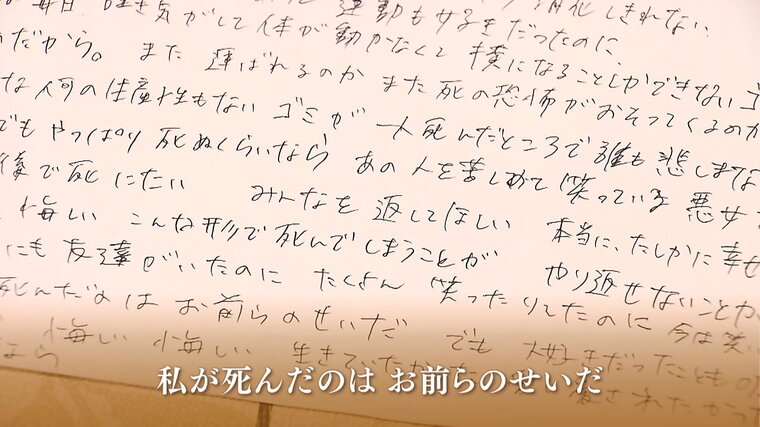 毎日 吐き気がして体が動かなくて横になることしかできないゴ
運動も大好きだったのに 消化しきれない
だから。また 運ばれるのか また 死の恐怖がおそってくるのか
な何の生産性もない ゴミが 一人死んだところで誰も悲しまな
でも やっぱり 死ぬくらいなら あの人を苦しめて笑っている 悪女
後で死にたい みんなを返してほしい 本当に、たしかに幸せ
悔しい こんな形で死んでしまうことが やり返せないことが
にも友達がいたのに たくさん 笑ったりしてたのに 今は笑
死んだのは お前らのせいだ でも 大好きだったことも
悔しい 悔しい 生きていたか されたかった
私が死んだのは お前らのせいだ